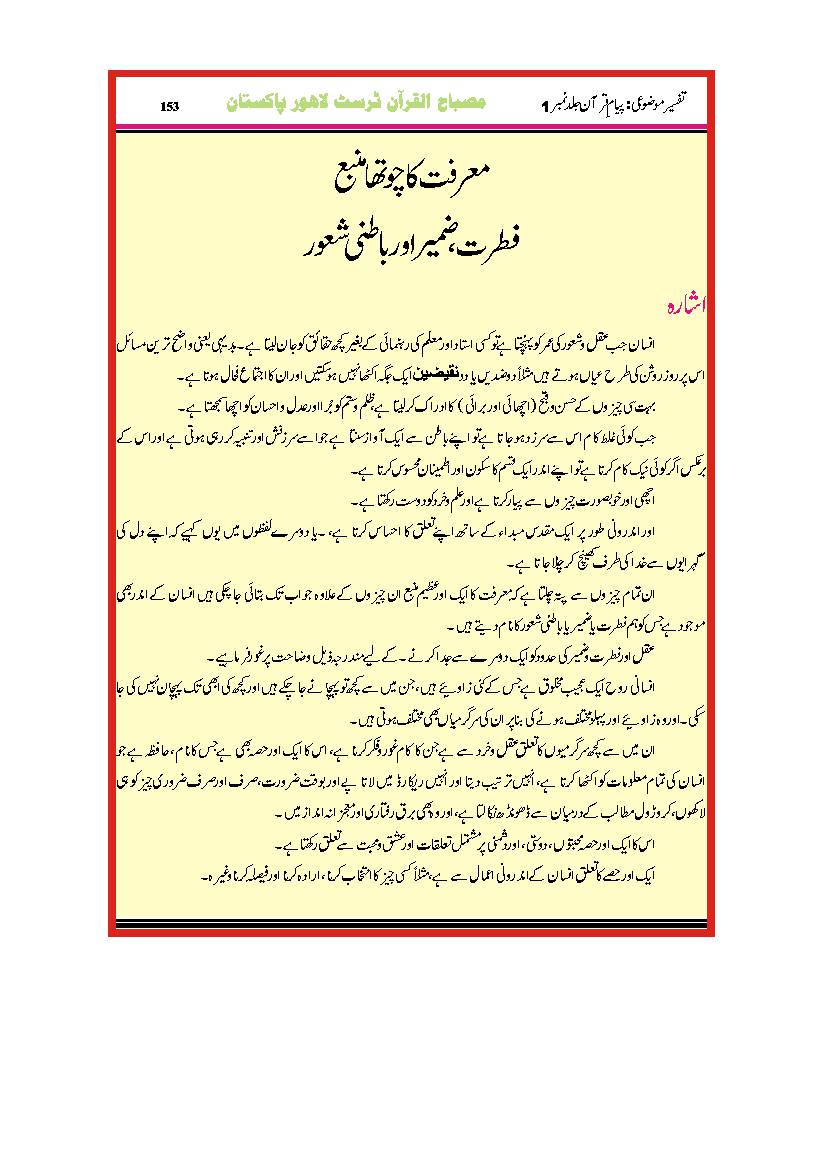 تفسیر موضوعی: پیام قرآن جلد نمبر 1 مصباح القرآن ٹرسٹ لاہور پاکستان 153
معرفت کا چوتھا منبع
فطرت، ضمیر اور باطنی شعور
اشارہ
انسان جب عقل و شعور کی عمر کو پہنچتا ہے تو کسی استاد اور معلم کی رہنمائی کے بغیر کچھ حقائق کو جان لیتا ہے۔ بدیہی یعنی واضح ترین مسائل
اس پر روز روشن کی طرح عیاں ہوتے ہیں مثلاً دو ضدیں یا دو نقیضین ایک جگہ اکٹھا نہیں ہو سکتیں اور ان کا اجتماع محال ہوتا ہے۔
بہت سی چیزوں کے حسن و قبح (اچھائی اور برائی) کا ادراک کر لیتا ہے، ظلم و ستم کو بُرا اور عدل و احسان کو اچھا سمجھتا ہے۔
جب کوئی غلط کام اس سے سرزد ہو جاتا ہے تو اپنے باطن سے ایک آواز سنتا ہے جو اسے سرزنش اور تنبیہ کر رہی ہوتی ہے اور اس کے
برعکس اگر کوئی نیک کام کرتا ہے تو اپنے اندر ایک قسم کا سکون اور اطمینان محسوس کرتا ہے۔
اچھی اور خوبصورت چیزوں سے پیار کرتا ہے اور علم و خرد کو دوست رکھتا ہے۔
اور اندرونی طور پر ایک مقدس مبداء کے ساتھ اپنے تعلق کا احساس کرتا ہے، ۔ یا دوسرے لفظوں میں یوں کہیے کہ اپنے دل کی
گہرایوں سے خدا کی طرف کھینچ کر چلا جاتا ہے۔
ان تمام چیزوں سے پتہ چلتا ہے کہ معرفت کا ایک اور عظیم منبع ان چیزوں کے علاوہ جو اب تک بتائی جا چکی ہیں انسان کے اندر بھی
موجود ہے جس کو ہم فطرت یا ضمیر یا باطنی شعور کا نام دیتے ہیں ۔
عقل اور فطرت و ضمیر کی حدود کو ایک دوسرے سے جدا کرنے ۔ کے لیے مندرجہ ذیل وضاحت پر غور فرمایے ۔
انسانی روح ایک عجیب مخلوق ہے جس کے کئی زاویئے ہیں، جن میں سے کچھ تو پہچانے جا چکے ہیں اور کچھ کی ابھی تک پہچان نہیں کی جا
سکی۔ اور وہ زاویئے اور پہلو مختلف ہونے کی بنا پر ان کی سرگرمیاں بھی مختلف ہوتی ہیں۔
ان میں سے کچھ سرگرمیوں کا تعلق عقل و خرد سے ہے جن کا کام غور و فکر کرنا ہے، اس کا ایک اور حصہ بھی ہے جس کا نام، حافظہ ہے جو
انسان کی تمام معلومات کو اکٹھا کرتا ہے، اُنہیں ترتیب دیتا اور انہیں ریکارڈ میں لاتا ہے اور بوقت ضرورت، صرف اور صرف ضروری چیز کو ہی
لاکھوں، کروڑوں مطالب کے درمیان سے ڈھونڈھ نکالتا ہے، اور وہ بھی برق رفتاری اور معجزانہ انداز میں ۔
اس کا ایک اور حصہ محبتوں، دوستی، اور دشمنی پر مشتمل تعلقات اور عشق و محبت سے تعلق رکھتا ہے۔
ایک اور حصے کا تعلق انسان کے اندرونی اعمال سے ہے، مثلاً کسی چیز کا انتخاب کرنا، ارادہ کرنا اور فیصلہ کرنا وغیرہ۔